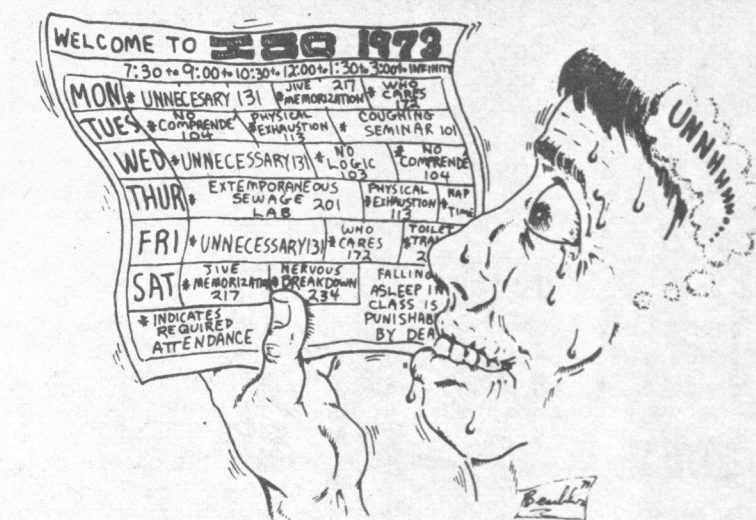 WELCOME TO 1973
7:30 to 9:00 to 10:30 to 12:00 to 1:30 to 3:00 to INFINITY
MON * UNNECESARY 131
JIVE 217
* MEMORIZATION
* WHO
CARES
172
TUES
NO
* COMPRENDE
104
PHYSICAL
* EXHAUSTION
113
* COUGHING
SEMINAR 101
WED * UNNECESSARY 131
* NO
LOGIC
103
* NO
COMPRENDE
104
THUR
* EXTEMPORANEOUS
SEWAGE 201
LAB
PHYSICAL
* EXHAUSTION
113
* NAP
TIME
FRI * UNNECESSARY 131
WHO
* CARES
172
TOILET
* TRAI
2
SAT
JIVE
* MEMORIZATION
217
NERVOUS
* BREAKDOWN
234
FALLING
ASLEEP IN
CLASS IS
PUNISHAB
BY DEA
* INDICATES
REQUIRED
ATTENDANCE
UNNHH...